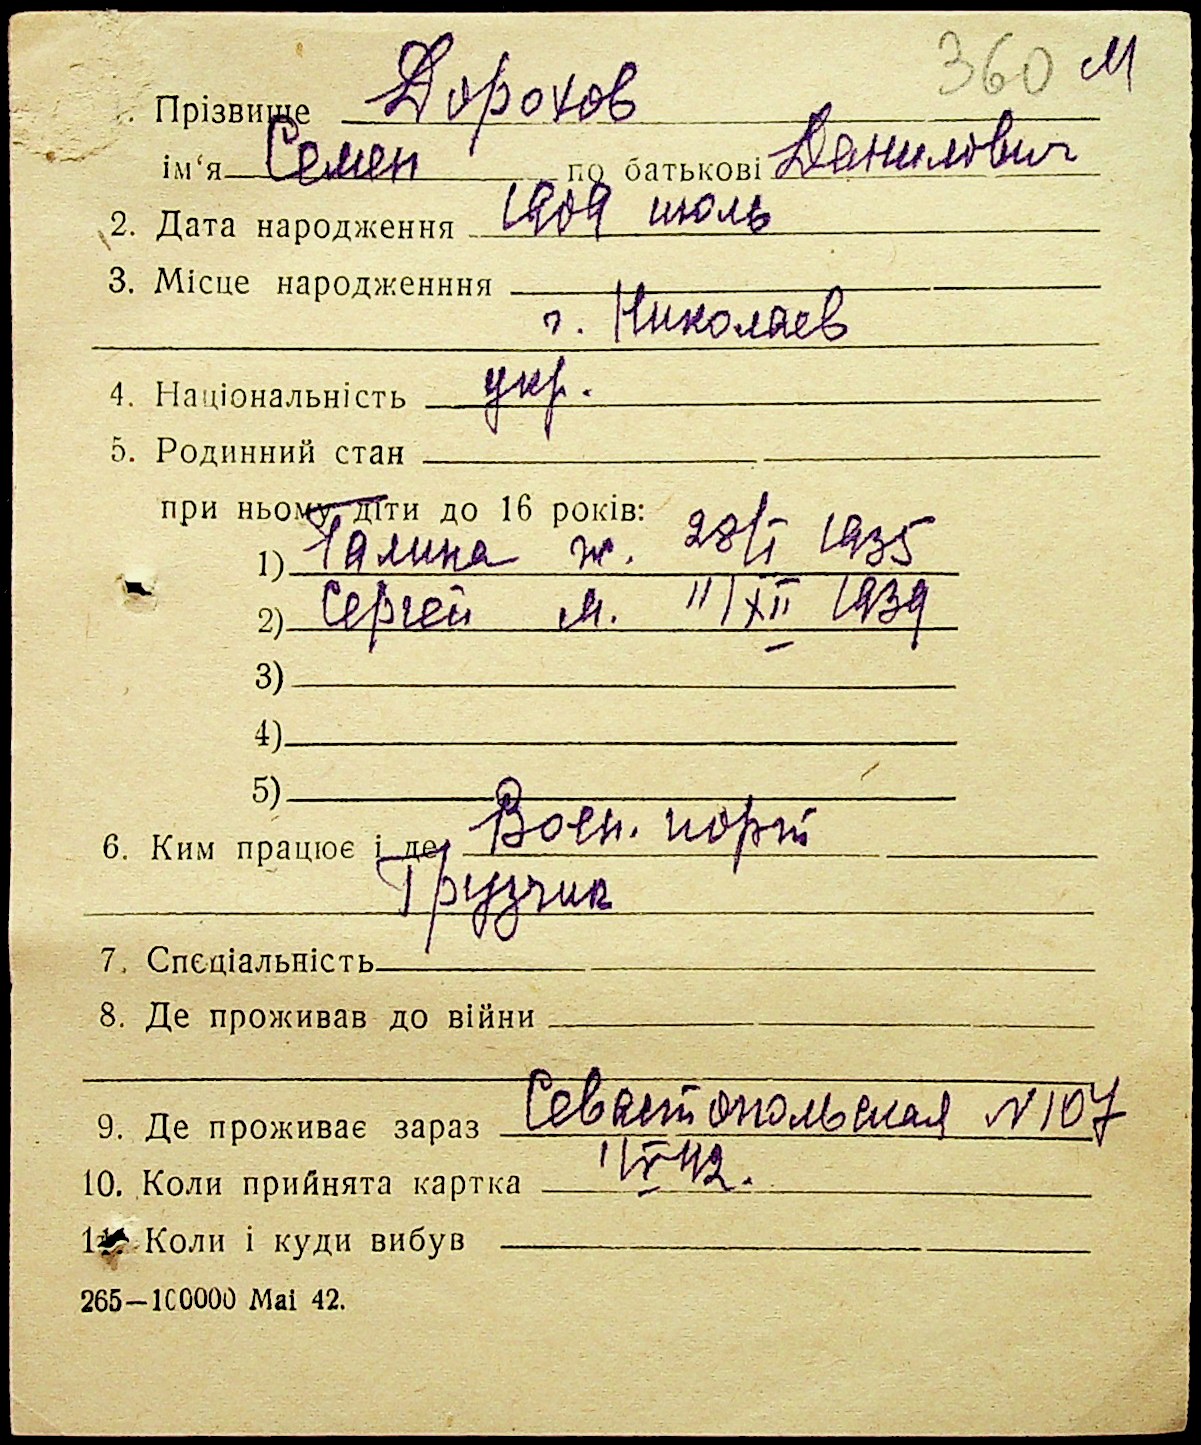 360 М
. Прізвище Дорохов
ім‘я Семен по батькові Данилович
2. Дата народження 1909 июль
3. Місце народженння
г. Николаев
4. Національність укр.
5. Родинний стан
при ньому діти до 16 років:
1) Галина ж. 28/I 1935
2) Сергей м. 11/XII 1939
3)
4)
5)
6. Ким працює і де Воен. порт
Грузчик
7. Спєціальність
8. Де проживав до війни
9. Де проживає зараз Севастопольская N 107
10. Коли прийнята картка 1/V 42.
11. Коли і куди вибув
265—100000 Mai 42.